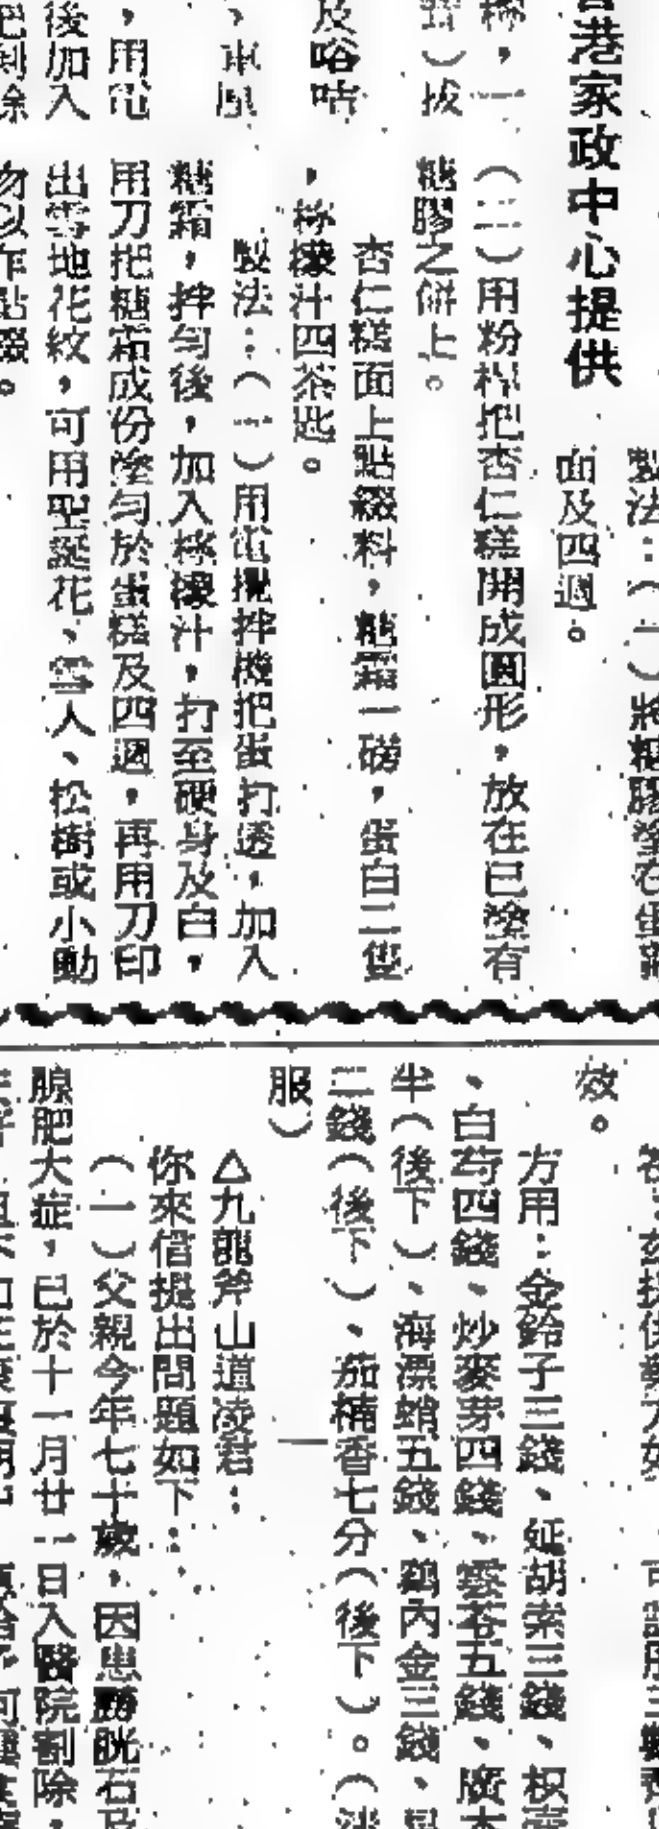 港家政中心提供
製法：（一）將糖膠塗在蛋糕
面及四週。
（二）用粉桿把杏仁糕開成圓形，放在已塗有
糖膠之餅上。
杏仁糕面上點綴料，糖霜一磅，蛋白二隻
，檸檬汁四茶匙。
製法：（一）用電攪拌機把蛋打透，加入
糖霜，拌勻後，加入檸檬汁，打至硬身及白，
用刀把糖霜成份塗勻於蛋糕及四週，再用刀印
出雪地花紋，可用聖誕花、雪人、松樹或小動
物以作點綴。
及咯咕
，用電
後加入
效。
方用：金鈴子三錢、延胡索三錢、枳壳
、白芍四錢、炒麥芽四錢、雲苓五錢、廣木
半（後下）、海漂蛸五錢、鷄內金三錢、
二錢（後下）、茄楠香七分（後下）。（
服）
△九龍斧山道凌君：
你來信提出問題如下：
（一）父親今年七十歲，因患膀胱石及
腺肥大症，已於十一月廿一日入醫院割除，